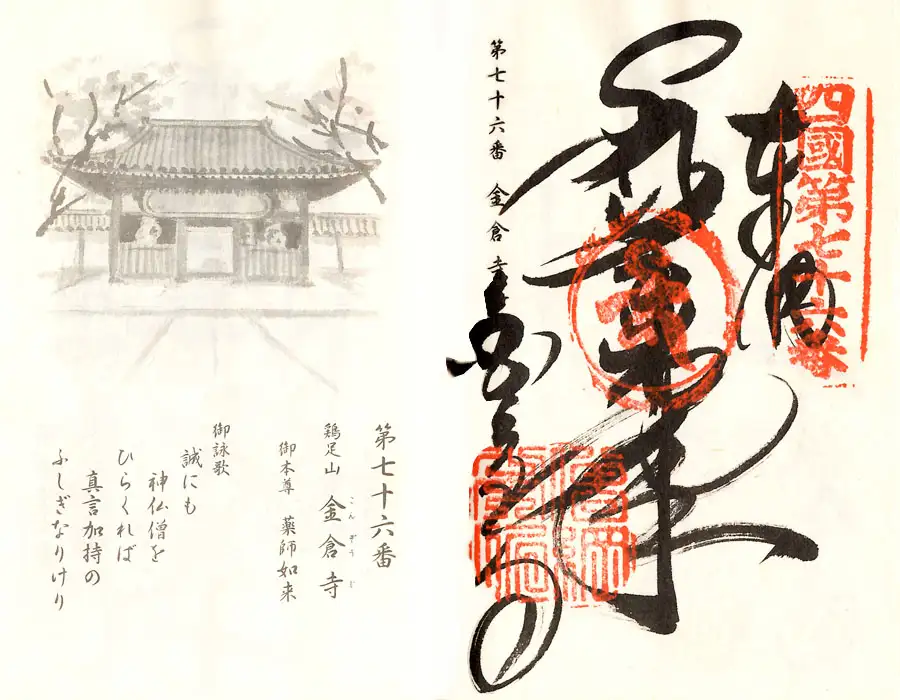 四國第七十六番
奉納
薬師如来
第七十六番 金倉寺
第七十六番
鶏足山 金倉寺
こんぞうじ
御本尊 薬師如来
御詠歌
誠にも
神仏僧を
ひらくれば
真言加持の
ふしぎなりけり